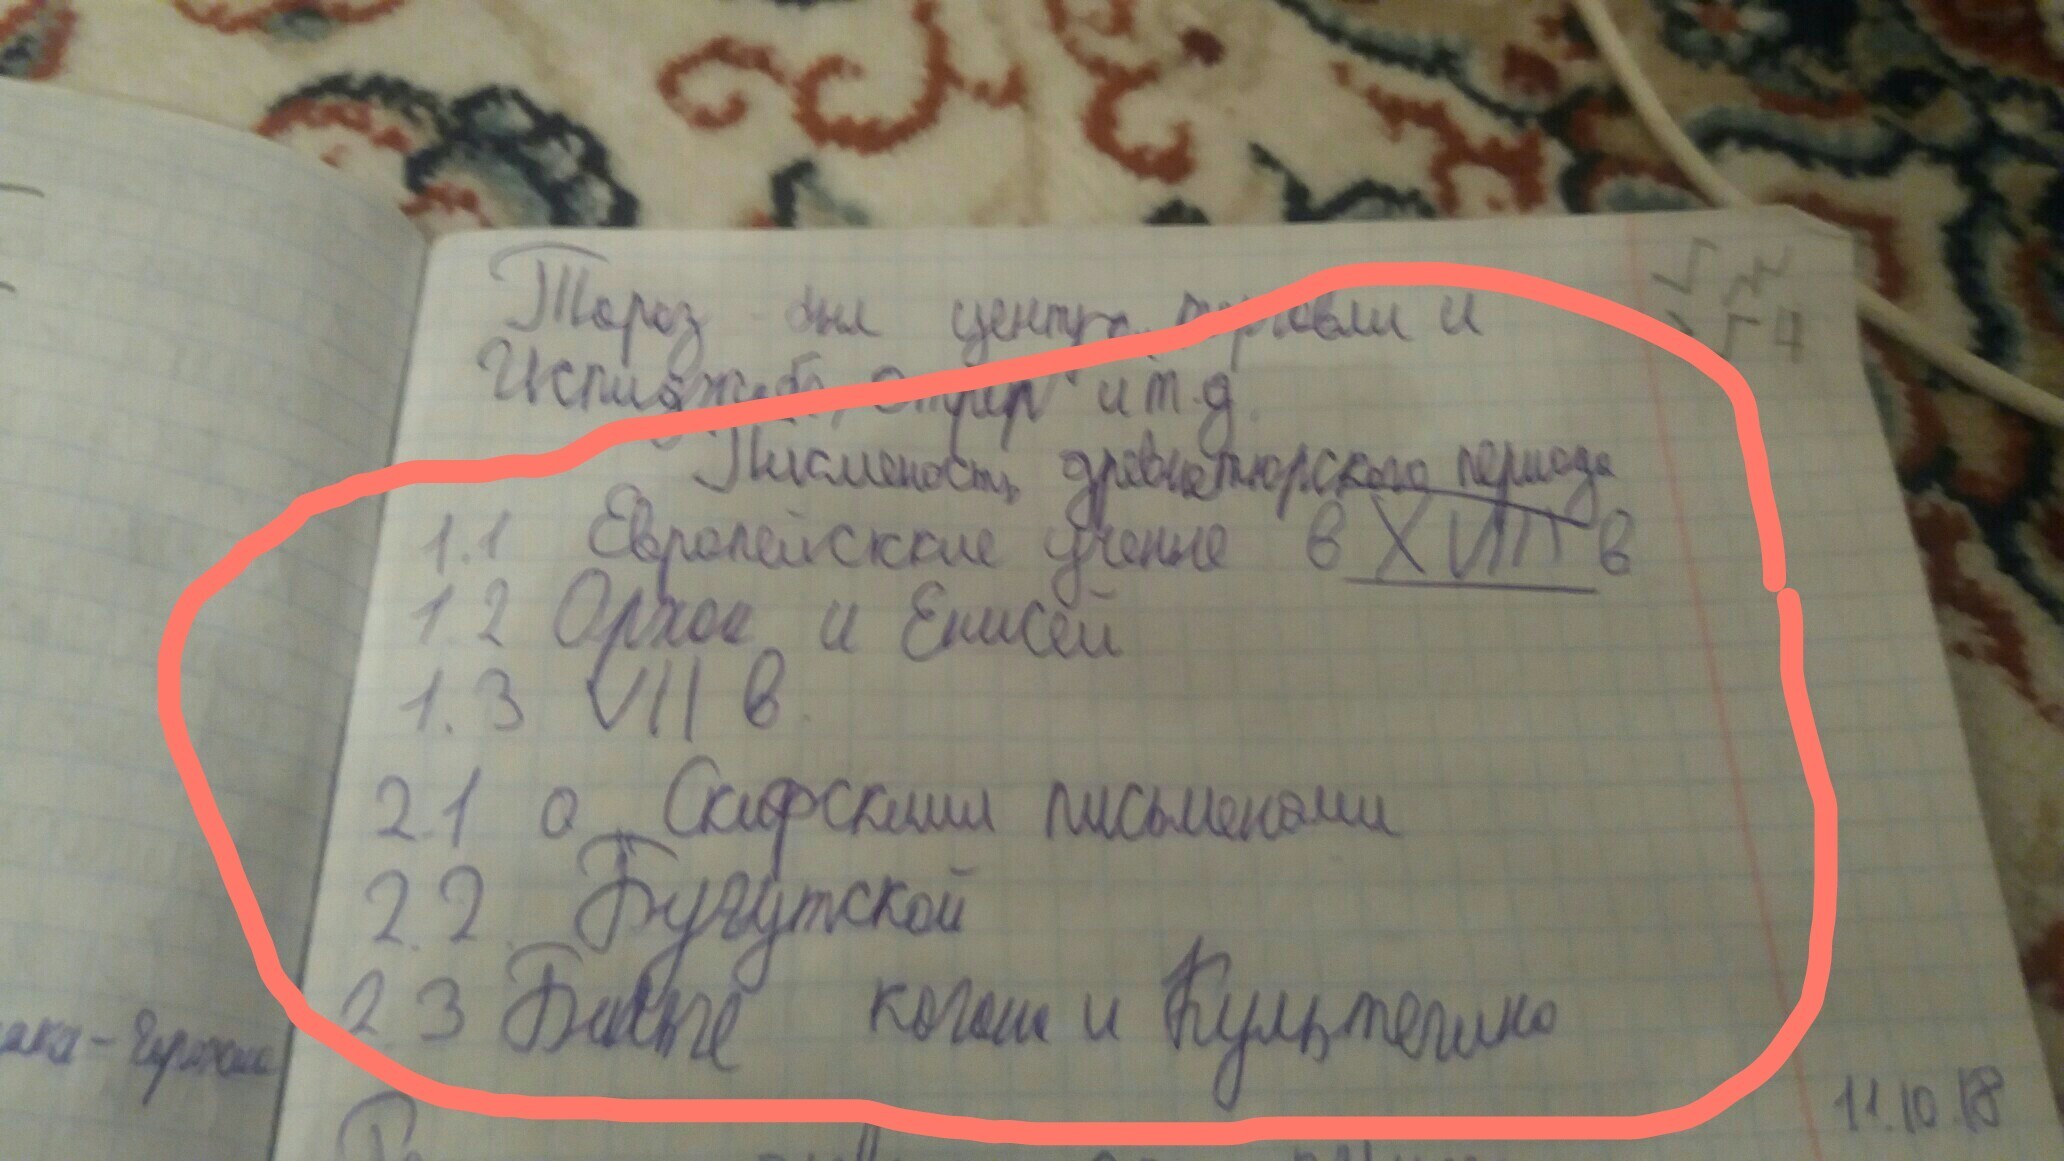 Тараз был центра торговли и
Испиджаб, Отрар и т.д.
Письменость древнетюрского периода
1.1 Европейские учение в XVIII в
1.2 Орхон и Енисей
1.3 VII в.
2.1 о Скифскими письменами
2.2. Бугутской
2 3 Бильге каган и Культегина
11.10.18